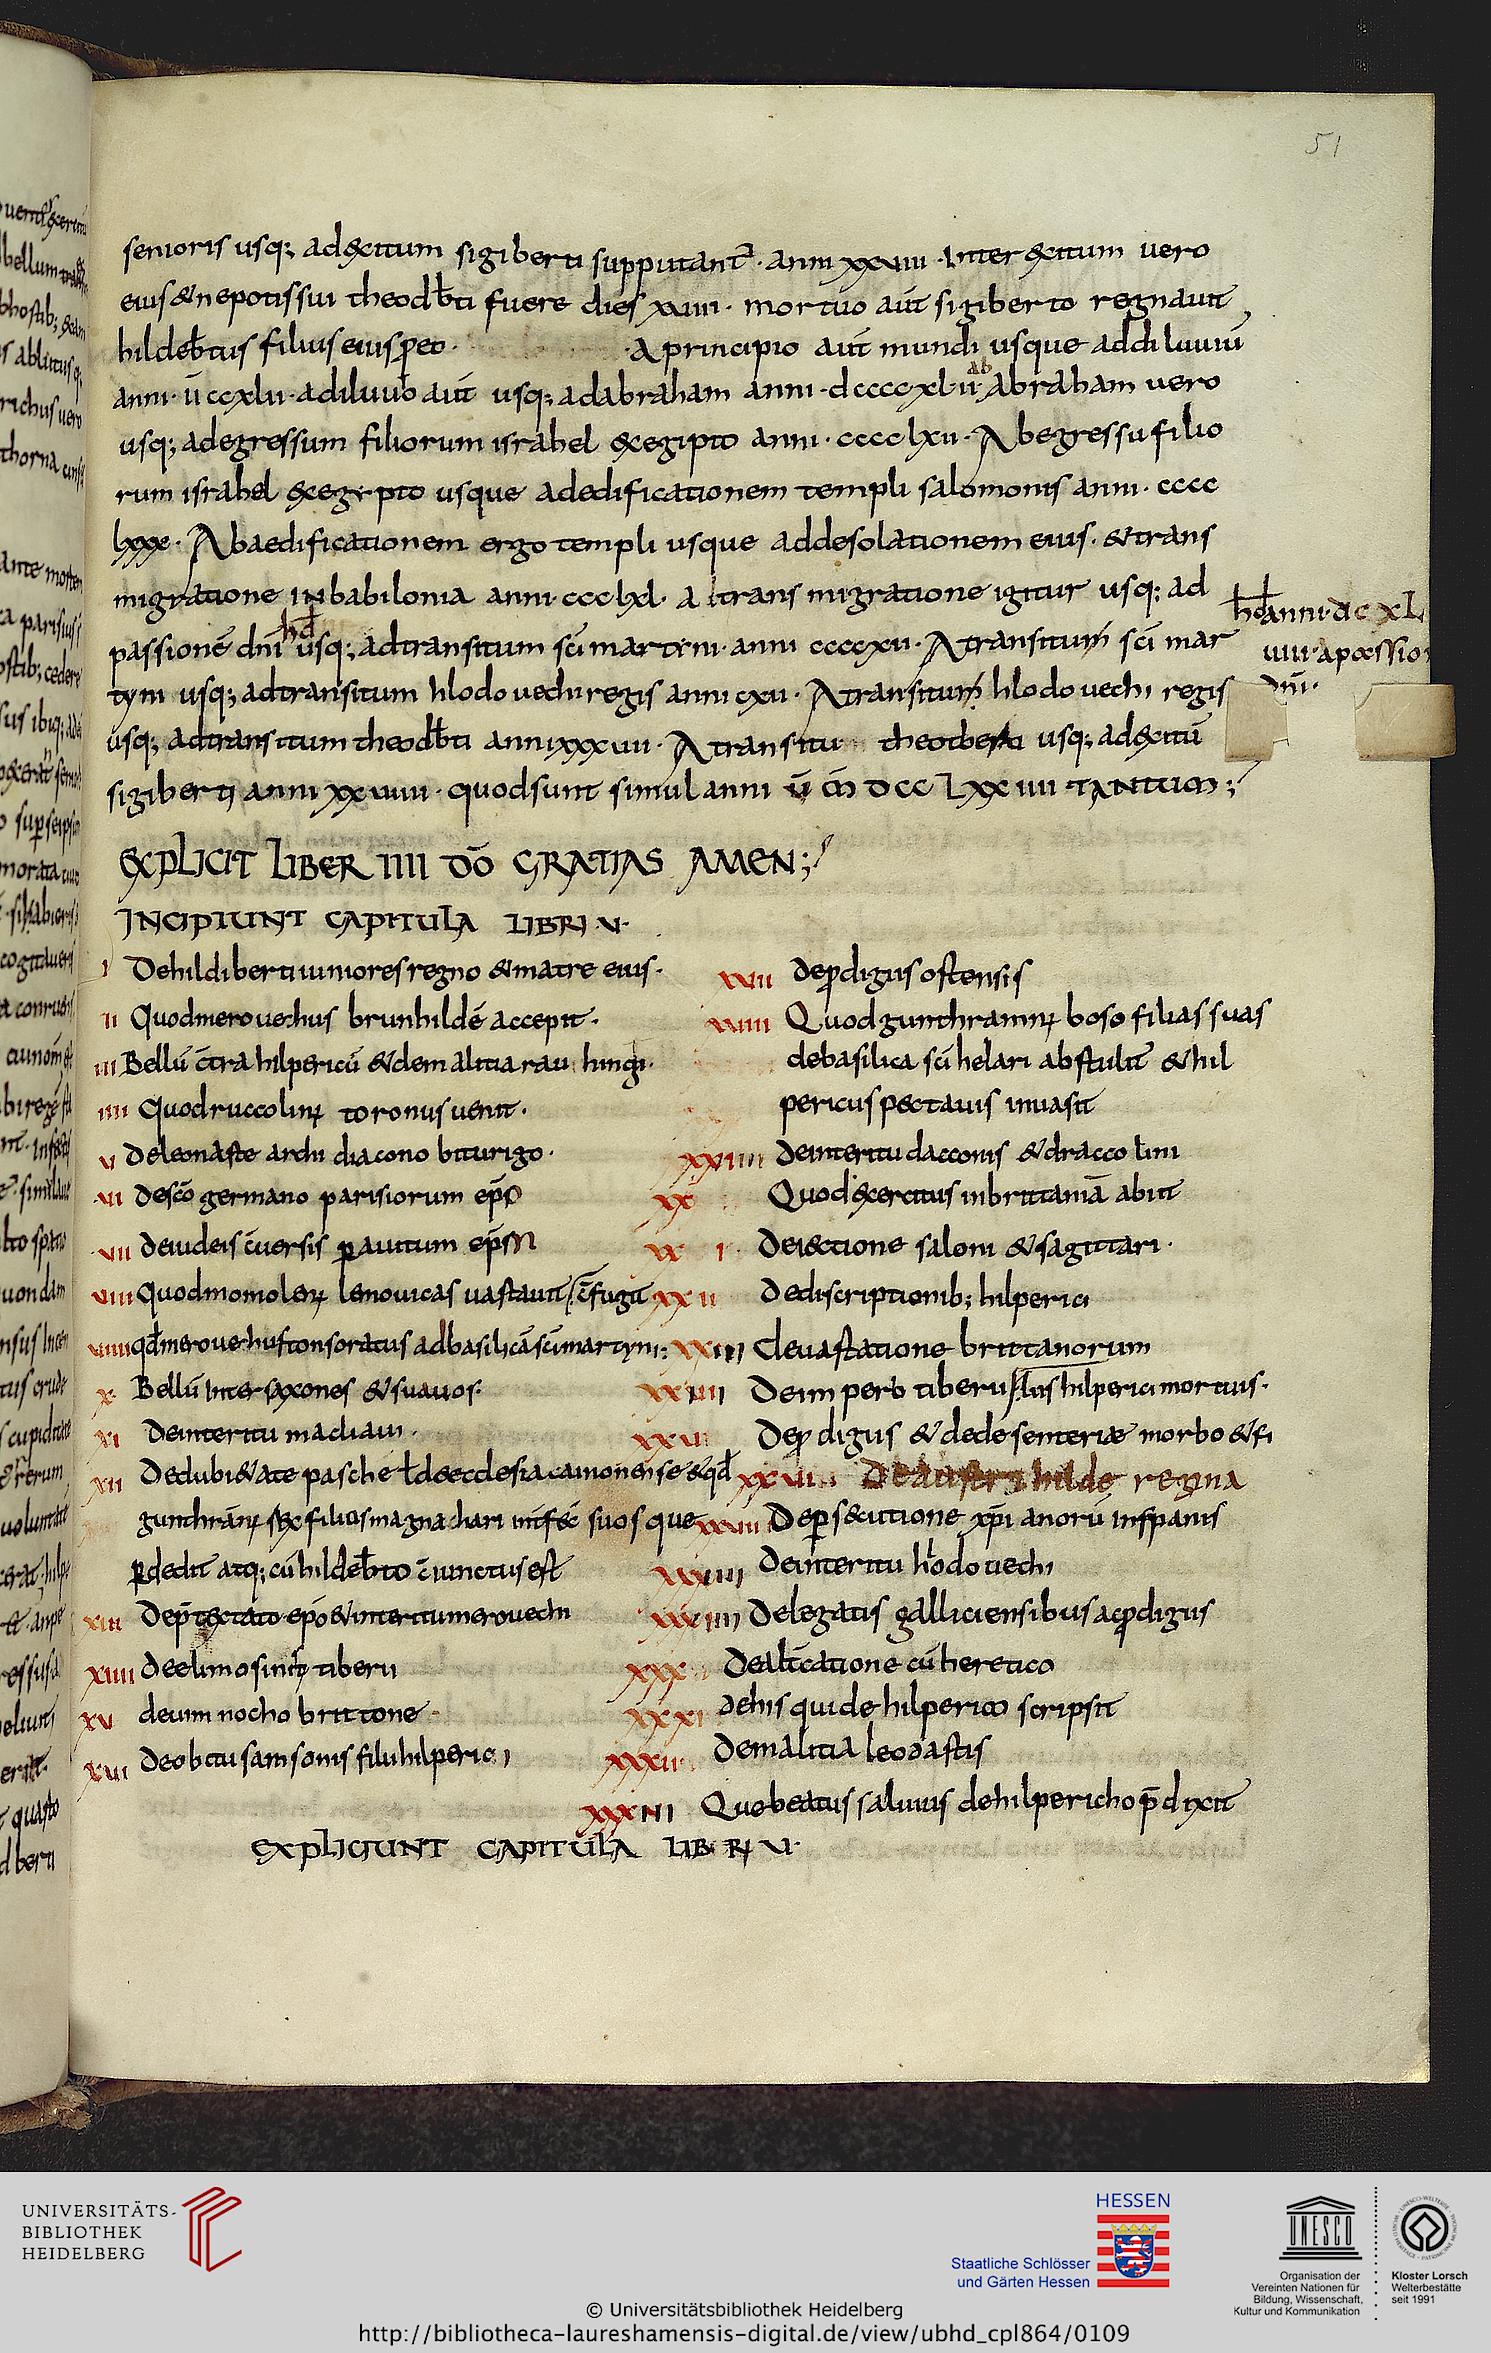 51
senioris usq; ad exitum sigiberti supputant anni xxviiii · Inter exitum vero
eius & nepotis sui theodb̄ti fuere dies xviii · mortuo aūt sigiberto regnauit
hildeb̄tus filius eius p̄ eo · A principio aūt mundi usque ad diluuiū
anni · īī ccxlii · a diluuio aūt usq; ad abraham anni · dccccxlii ab abraham vero
usq; ad egressum filiorum israhel ex egipto anni · cccclxii · Ab egressu filio
rum israhel ex egypto usque ad edificationem templi salomonis anni · cccc
lxxx · Ab aedificationem ergo templi usque ad desolationem eius · & trans
migratione in babilonia anni · ccclxl · a transmigratione igitur usq; ad
passionē dn̄i hd usq; ad transitum sc̄i martyni · anni ccccxii · A transitum sc̄i mar
tyni usq; ad transitum hlodouechi regis anni cxii · A transitum hlodouechi regis
usq; ad transitum theodb̄ti anni xxxvii · A transitu theotberti usq; ad exitū
sigiberti anni xxviiii · quod sunt simul anni v̄ m̄ DCC LXXIIII TANTUM;
hd anni · dc xL
uiii · a passio
dn̄i ·
EXPLICIT LIBER IIII DŌ GRATIAS AMEN;
INCIPIUNT CAPITULA LIBRI · V ·
I De hildiberti iuniores regno & matre eius ·
II Quod merouechus brunhildē accepit ·
III Bellū c̄tra hilpericū & de malitia rauhingi ·
IIII Quod ruccolinus toronus uenit ·
V De leonaste archidiacono biturigo ·
VI De sc̄o germano parisiorum ep̄o
VII De iudeis c̄uersis p auitum ep̄m
VIII Quod momolenus lemouicas uastauit
VIIII qd merouehus tonsoratus ad basilicā sc̄i martyni ·
X Bellū inter saxones & suauos ·
XI De interitu macliaui ·
XII De dubi&ate pasche & de ecclesia cainonense & qd
gunthrānus filiis magnachari interfec suos que
pdedit atq; cū hildeb̄to c̄iunctus est
XIII De p̄textato ep̄o & interitu merouechi
XIIII De elimosinis tiberii
XV de uuinnocho brittone ·
XVI De obitu samsonis filii hilperici
XVII De pdigiis ostensis
XVIII Quod gunthramnus boso filias suas
de basilica sc̄i helari abstulit & hil
pericus pectauis inuasit
XVIIII De interitu dacconis & draccoleni
XX Quod exercitus in brittaniā abiit
XX I De iectione saloni & sagittari ·
XXII De discriptionib; hilperici
XXIII De uastatione brittanorum
XXIIII De imperio tiberii
XXV De pdigiis & de desenteriae morbo & fi
XXVI De austrighilde regina
XXVII De psecutione xp̄ianorū in spaniis
XXVIII De interitu hlodouechi
XXVIIII De legatis galliciensibus ac pdigiis
XXX De altc̄atione cū heretico
XXXI de his qui de hilperico scripsit
XXXII De malitia leodastis
XXXIII Quo beatus saluius de hilpericho p̄dixit
EXPLICIUNT CAPITULA LIBRI V ·
UNIVERSITÄTS-
BIBLIOTHEK
HEIDELBERG
HESSEN
Staatliche Schlösser
und Gärten Hessen
UNESCO
Organisation der
Vereinten Nationen für
Bildung, Wissenschaft,
Kultur und Kommunikation
Kloster Lorsch
Welterbestätte
seit 1991
© Universitätsbibliothek Heidelberg
http://bibliotheca-laureshamensis-digital.de/view/ubhd_cpl864/0109